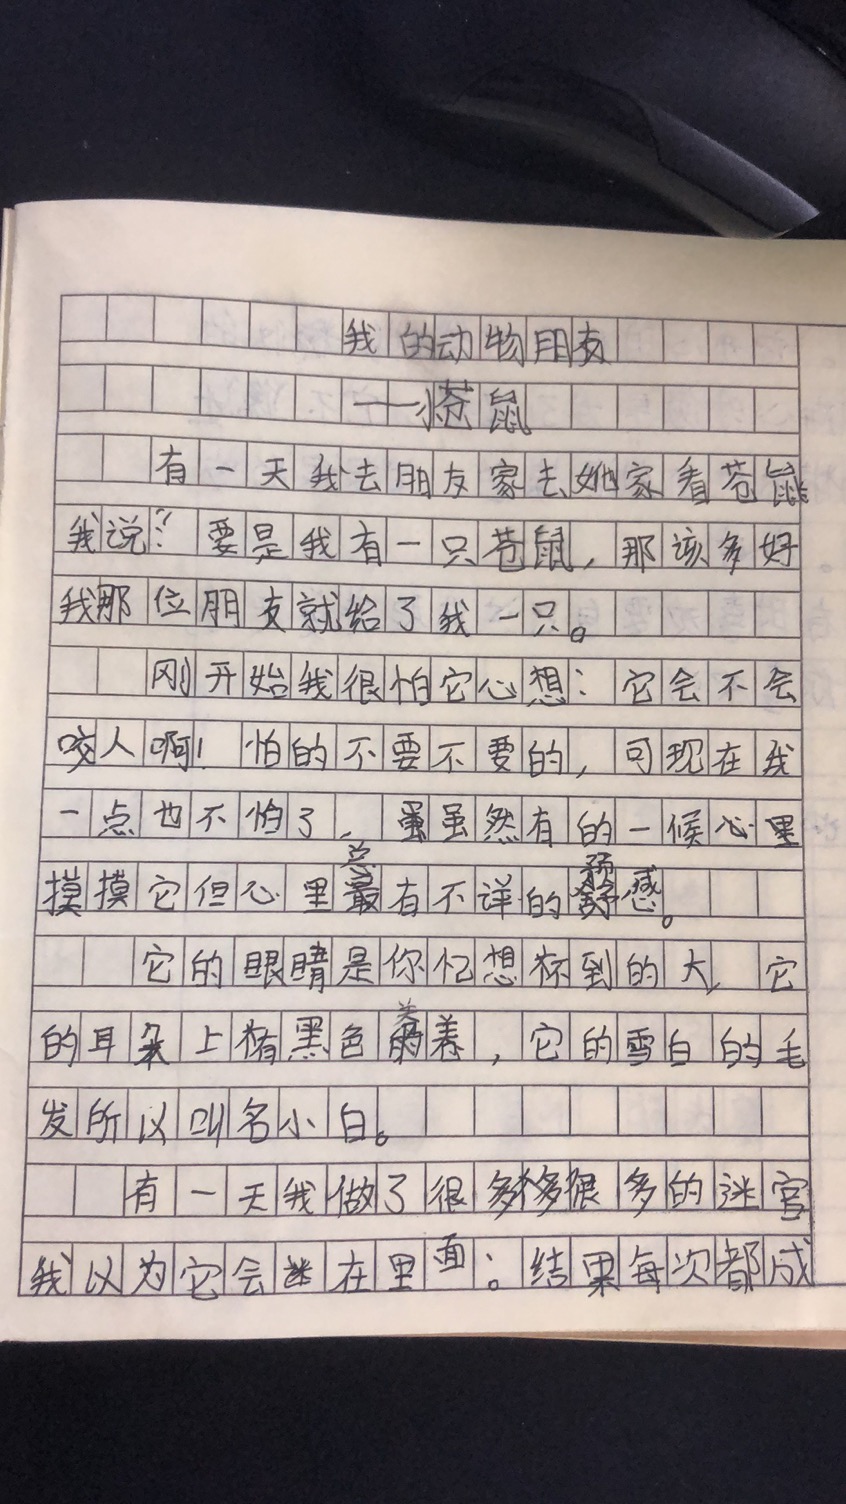 我的动物朋友
——苍鼠
有一天我去朋友家去她家看苍鼠
我说？要是我有一只苍鼠，那该多好
我那位朋友就给了我一只。
刚开始我很怕它心想：它会不会
咬人啊！怕的不要不要的，可现在我
一点也不怕了，虽虽然有的一候心里
摸摸它但心里总有不详的预感。
它的眼睛是你忆想不到的大，它
的耳朵上有黑色，它的雪白的毛
发所以叫名小白。
有一天我做了很多很多的迷宫
我以为它会迷在里面。结果每次都成